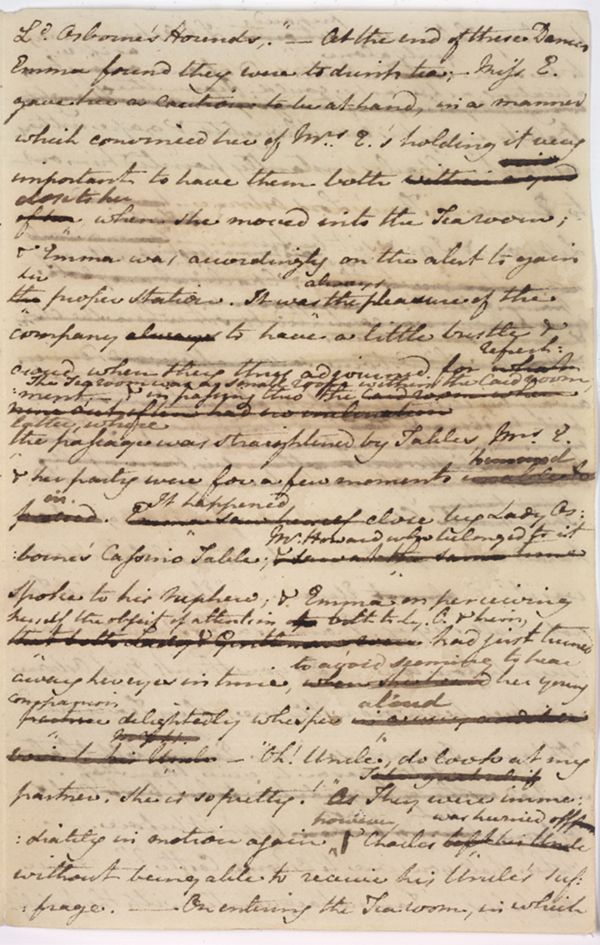 Ld. Osborne's Hounds,." — At the end of these Dances
Emma found they were to drink tea;— Miss E.
gave her a caution to be at hand, in a manner
which convinced her of Mrs. E.'s holding it very
important to have them both within
close to her
when she moved into the Tearoom;
& Emma was accordingly on the alert to gain
in
the proper station. It was the pleasure of the
always
company always to have a little bustle &
croud when they thus adjourned for
refresh:
The Tearoom was a small room within the Cardroom,
:ment;— & in passing thro' the Card room when
latter, where
the passage was straightened by Tables, Mrs. E.
hemmed
& her party were for a few moments
in.
It happened
close by Lady Os:
Mr. Howard who belonged to it
:borne's Cassino Table;
spoke to his Nephew; & Emma on perceiving
herself the object of attention to both Lady O. & him,
that both Lady & Gentleman were had just turned
to avoid seeming to hear
away her eyes in time, when her young
companion
partner delightedly whisper
aloud
— "Oh! Uncle", do look at my
partner. She is so pretty!" As They were imme:
however, was hurried off
:diately in motion again Charles left his Uncle
without being able to receive his Uncle's suf:
:frage. — On entering the Tearoom, in which